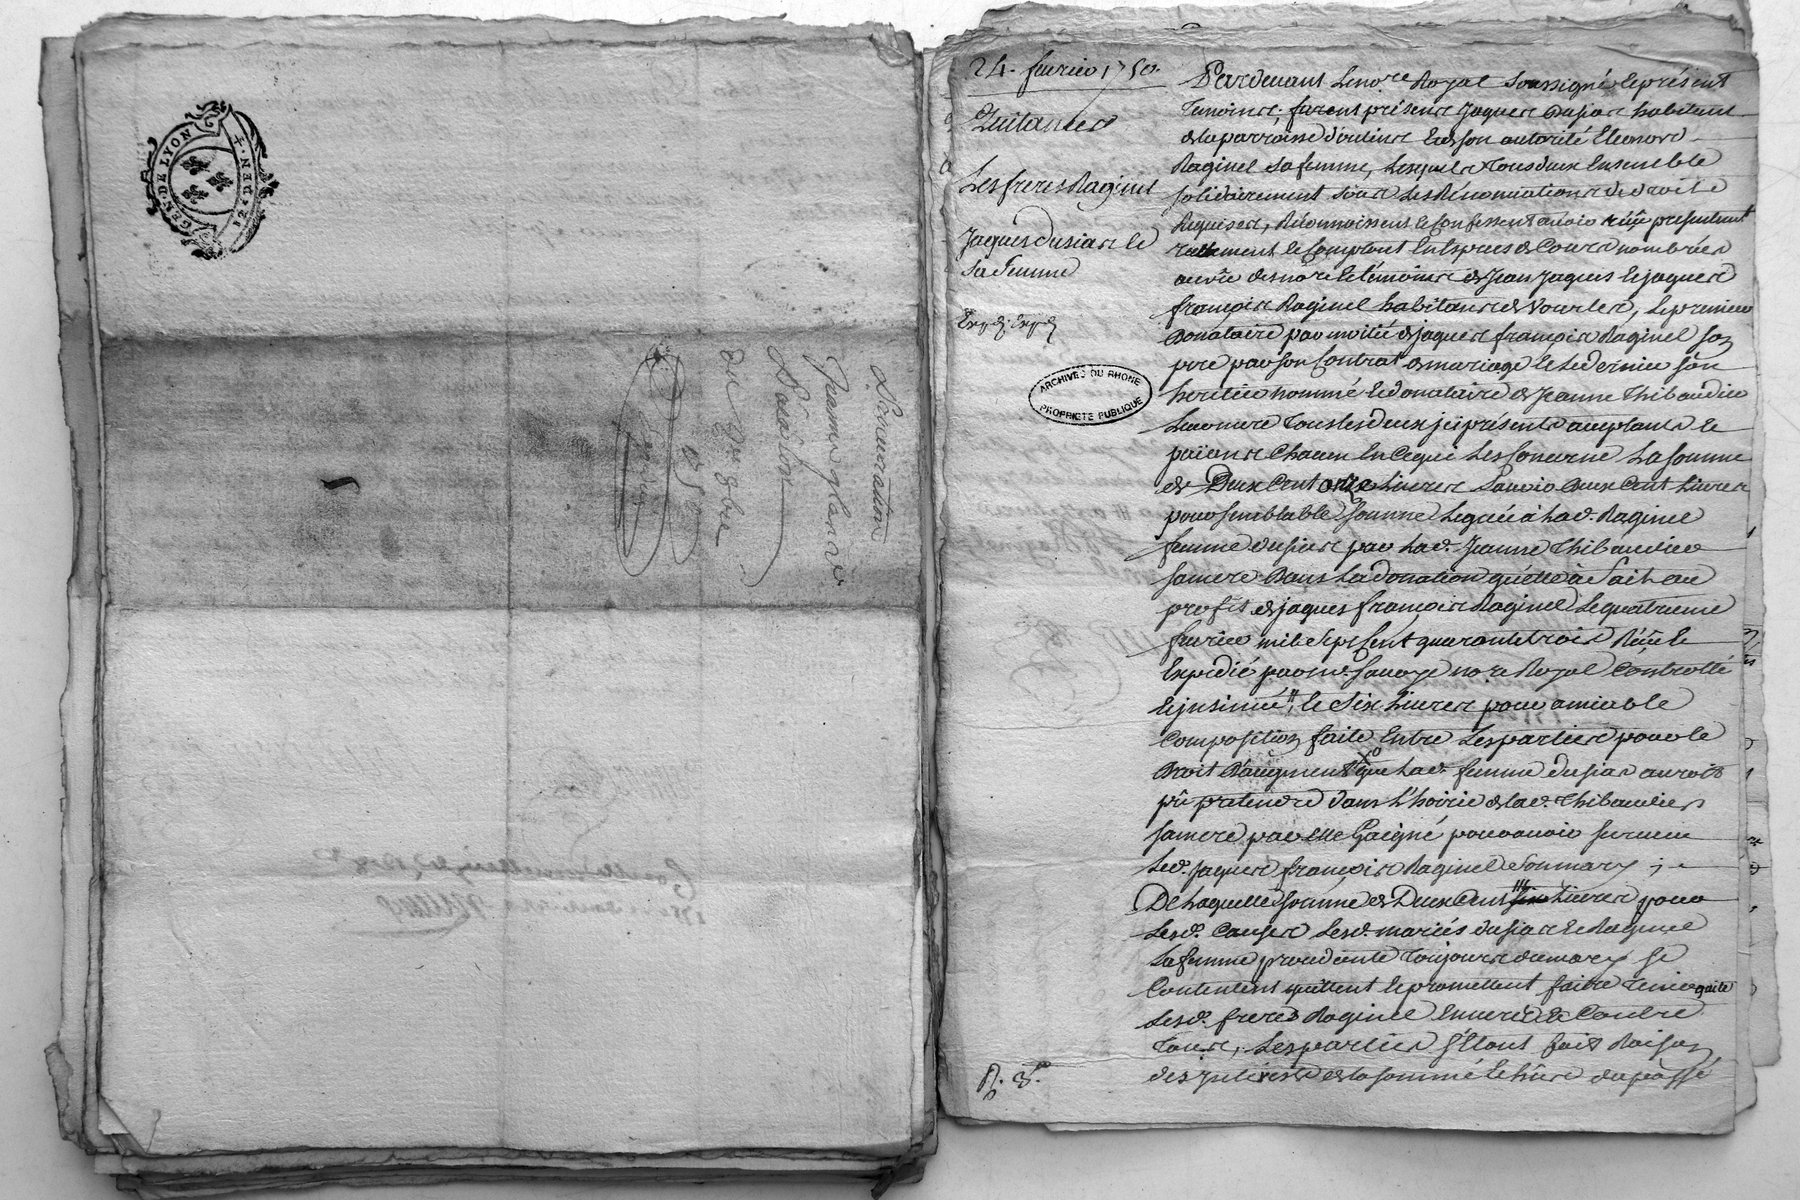 GEN. DE LYON
12 DEN. 4
Procuration
Jeanne
du 7bre
24. fevrier 1750.
Quitance
Les freres Raginel
Jaques dusiar et
sa femme
Expd. Expd.
ARCHIVES DU RHONE
PROPRIETE PUBLIQUE
Pardevant le nore Royal soussigné et présent
temoins, furent présens Jaques dusiar habitant
de la parroisse d'oulins et de son autorité Eleonore
Raginel sa femme, lesquels tous deux ensemble
solidairement sous les Rénonciations de droit
Requises, Réconnoissent et confessent avoir reçu presentement
réellement et comptant en espèces de cours nombrées
au vû de nore et témoins de Jean Jaques et jaques
françois Raginel habitans de vourles, le premier
donataire par moitié de jaques françois Raginel son
pere par son contrat de mariage et le dérnier son
heritier nommé et donataire de Jeanne Thibaudier
leur mere tous les deux ici présents acceptants et
païans chacun en ce qui les concerne la somme
de Deux Cent onze Livres sauoir deux Cent Livres
pour semblable somme leguée à lad. Raginel
femme dusiar par lad. Jeanne Thibaudier
sa mere dans la donation qu'elle à fait au
profit de jaques françois Raginel le quatrieme
fevrier mil sept cent quarante trois Réçüe et
Expedié par me. sauoye nore Royal Controllé
et jnsinué, et six Livres pour amiable
composition faite entre les parties pour le
Droit D'augment que lad. femme dusiar auroit
pû pretendre dans l'hoirie de lad. Thibaudier
sa mere par elle Gaigné pour avoir survecu
led. jaques françois Raginel son mary ; -
De laquelle somme de Deux Cent Livres pour
lesd. causes lesd. mariés dusiar et Raginel
la femme procedante toujours du mary se
contentent quittent et promettent faire tenir quite
lesd. freres Raginel envers et contre
tous, les parties s'etant fait Raison
des jnterests de la somme et hüre du passé